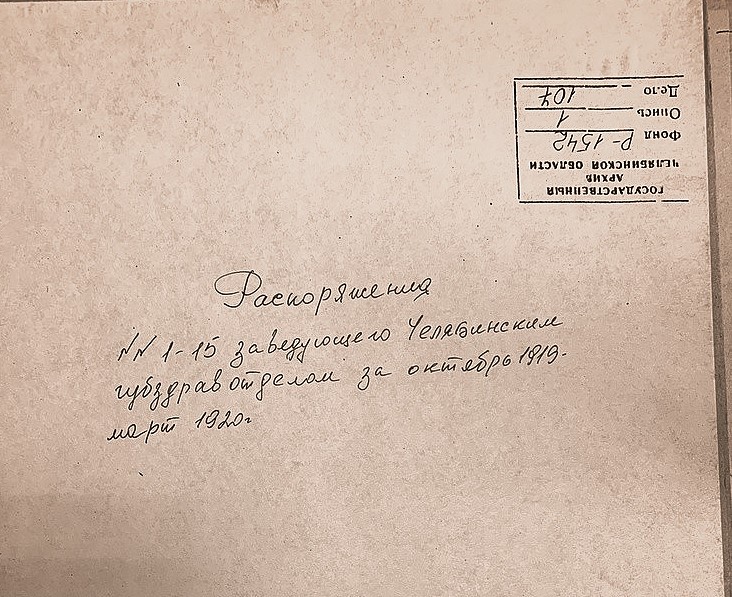 ГОСУДАРСТВЕННЫЙ
АРХИВ
ЧЕЛЯБИНСКОЙ ОБЛАСТИ
Фонд Р-1542
Опись 1
Дело 107
Распоряжения
№№ 1-15 заведующего Челябинским
губздравотделом за октябрь 1919-
март 1920г